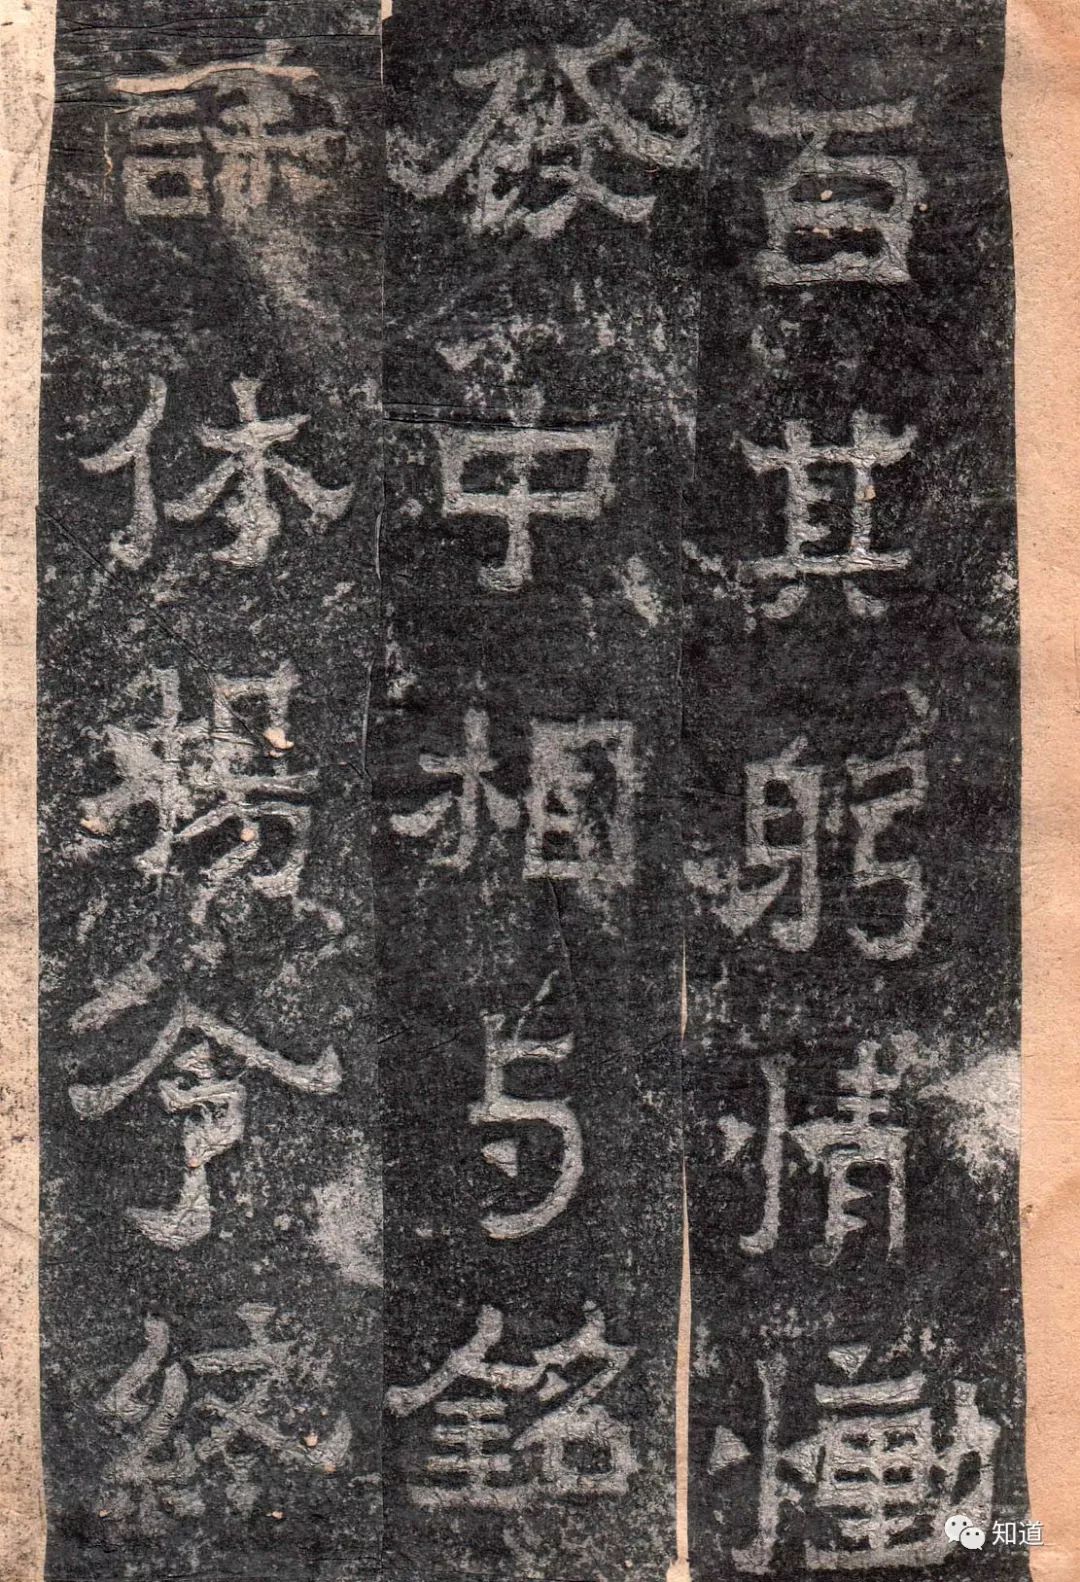 百其躬情慟
發中相与銘
誄休揚令終
知道